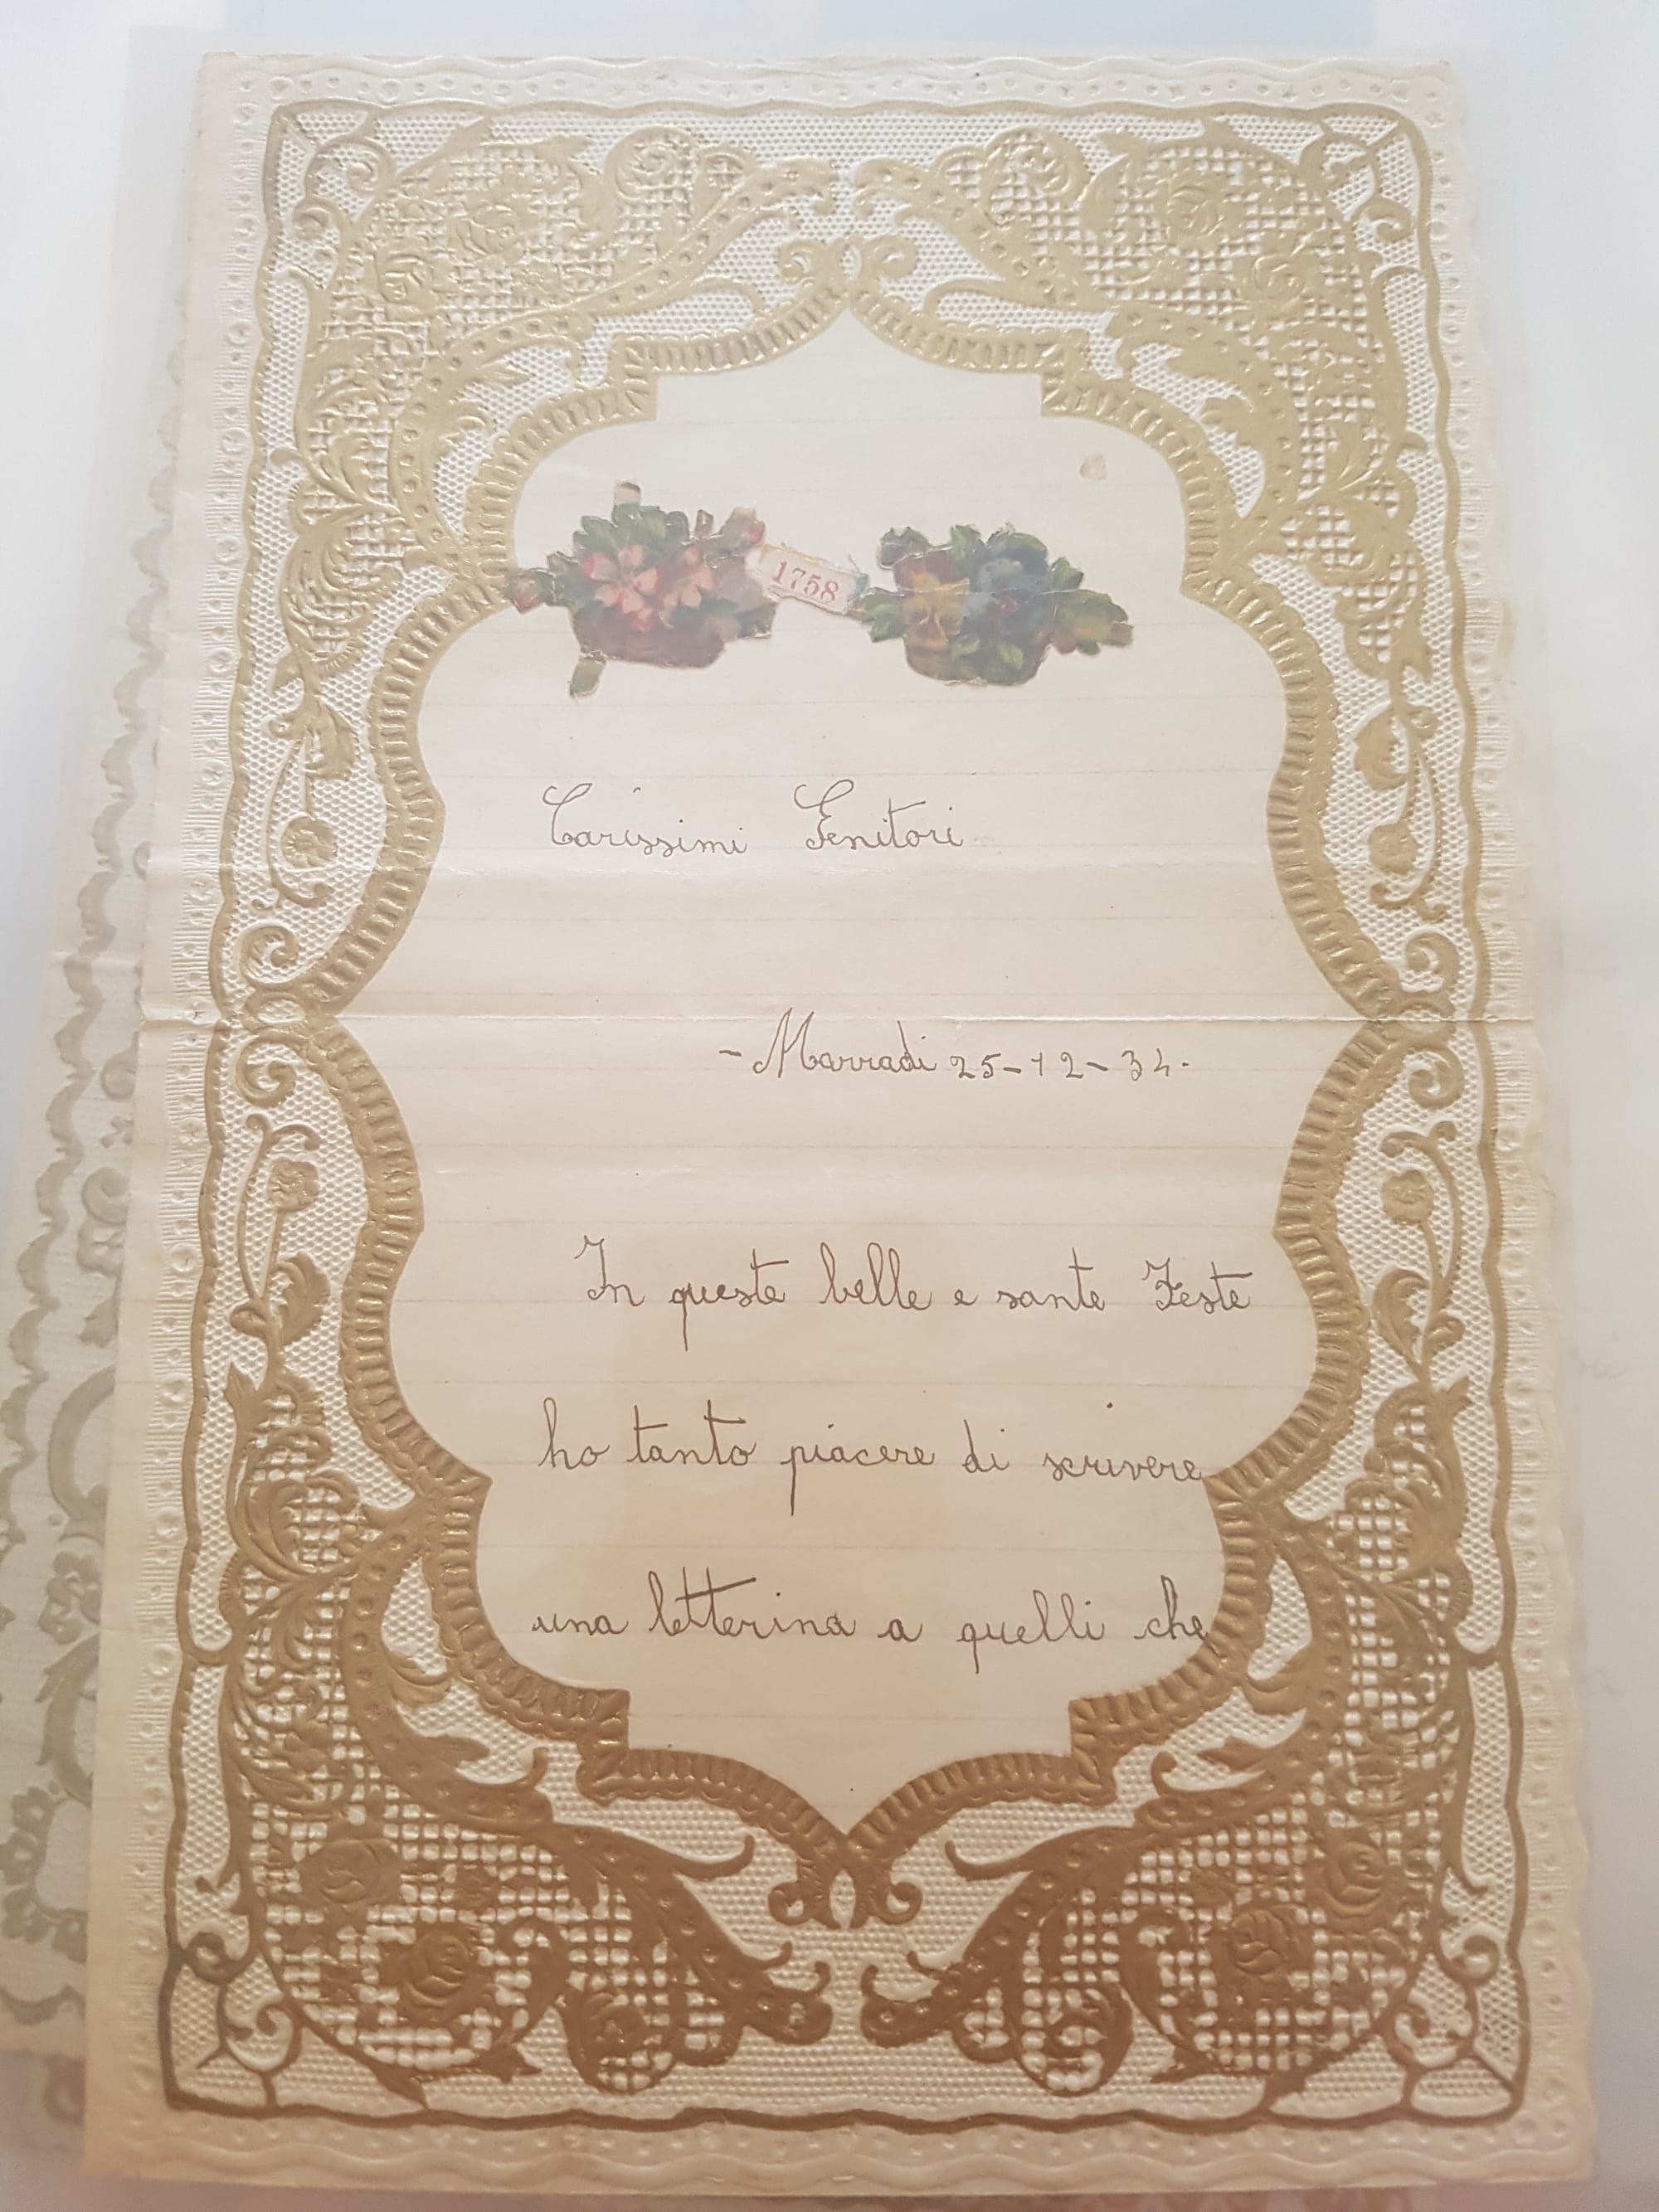 1758
Carissimi Genitori
- Marradi 25-12-34.
In queste belle e sante Feste
ho tanto piacere di scrivere
una letterina a quelli che